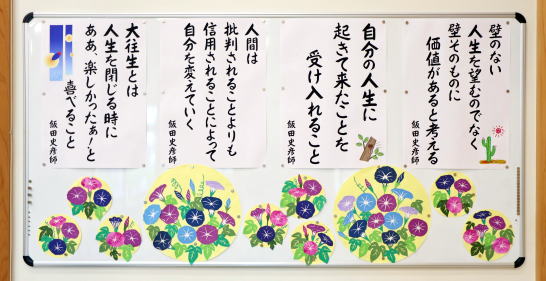 壁のない
人生を望むのでなく
壁そのものに
価値があると考える
飯田史彦師
自分の人生に
起きて来たことを
受け入れること
飯田史彦師
人間は
批判されることよりも
信用されることによって
自分を変えていく
飯田史彦師
大往生とは
人生を閉じる時に
ああ、楽しかったぁ!と
喜べること
飯田史彦師